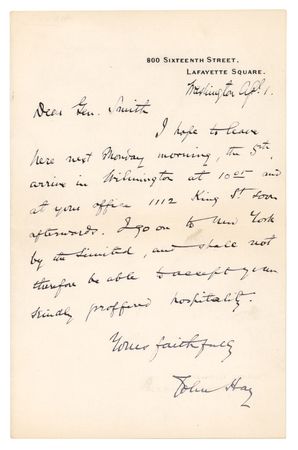 800 Sixteenth Street.
Lafayette Square.
Washington Apl. 1.
Dear Gen. Smith
I hope to leave
here next Monday morning, the 5th,
arrive in Wilmington at 10.25 and
at your office 1112 King St soon
afterwards. I go on to New York
by the Limited, and shall not
therefore be able to accept your
kindly proffered hospitality.
Yours faithfully
John Hay